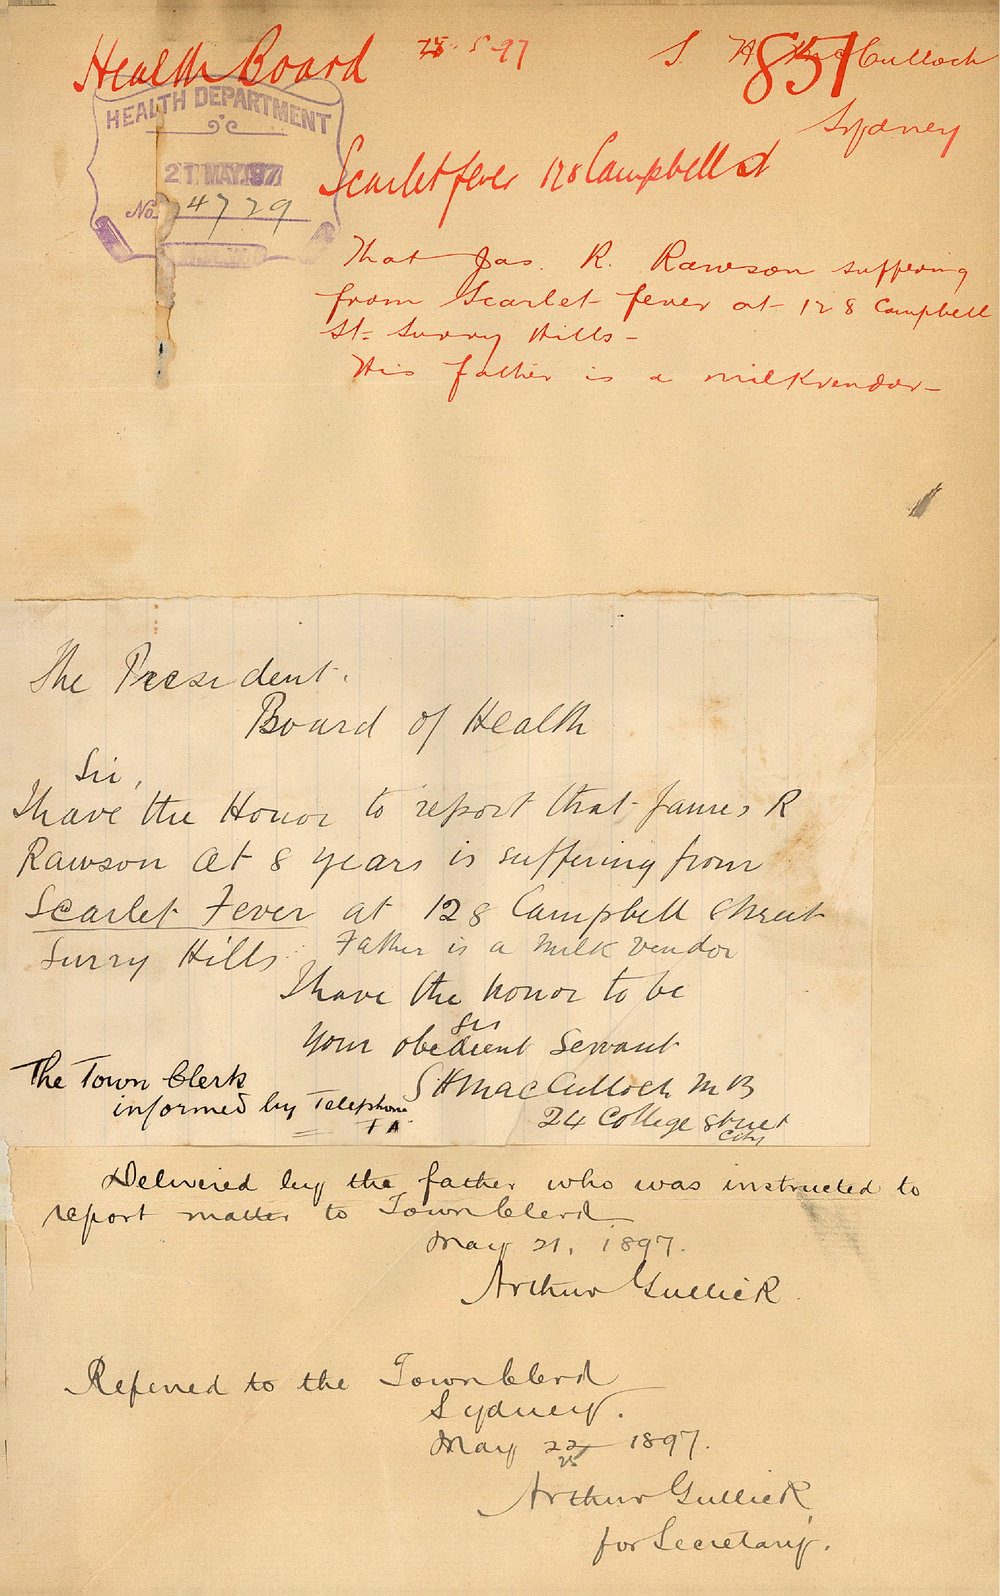 Health Board
25.5.97
S. H. MacCulloch
851
Sydney
HEALTH DEPARTMENT
21 MAY.97
No. 4729
Scarlet fever 128 Campbell St
That Jas. R. Rawson suffering
from Scarlet fever at 128 Campbell
St. Surry Hills -
His father is a milkvendor -
The President.
Board of Health
Sir,
I have the Honor to report that James R
Rawson aet 8 years is suffering from
Scarlet Fever at 128 Campbell Street
Surry Hills. Father is a milk vendor
I have the honor to be
Sir
Your obedient Servant
S H MacCulloch MB
24 College Street
City
The Town Clerk
informed by Telephone
Delivered by the father who was instructed to
report matter to Town Clerk
May 21, 1897.
Arthur Gullick.
Referred to the Town Clerk
Sydney.
May 22 1897.
25
Arthur Gullick
for Secretary.